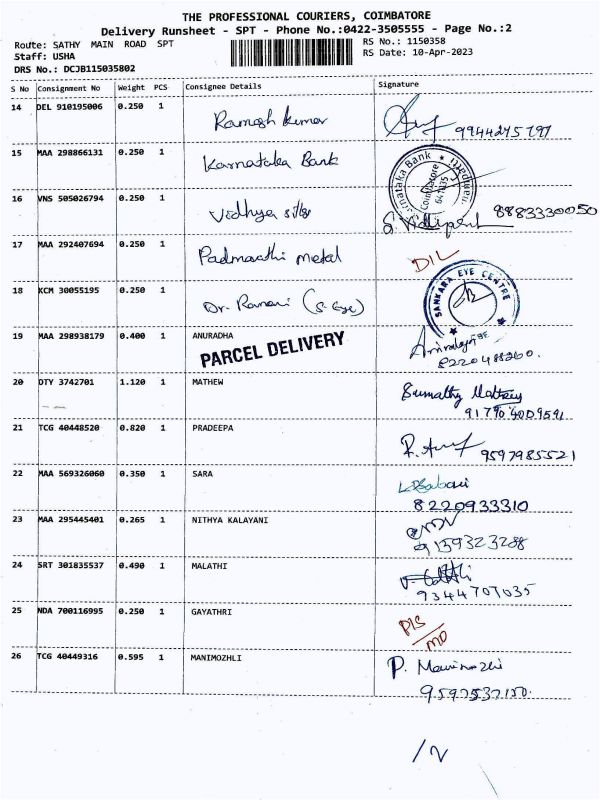 THE PROFESSIONAL COURIERS, COIMBATORE
Delivery Runsheet - SPT - Phone No.:0422-3505555 - Page No.:2
Route: SATHY MAIN ROAD SPT RS No.: 1150358
Staff: USHA RS Date: 10-Apr-2023
DRS No.: DCJB115035802
S No Consignment No Weight PCS Consignee Details Signature
14 DEL 910195006 0.250 1 Ramesh kumar
15 MAA 298866131 0.250 1 Karnataka Bank Karnataka Bank Coimbatore
16 VNS 505026794 0.250 1 Vidhya silks 8883330050
17 MAA 292407694 0.250 1 Padmavathi metal DIL
18 KCM 30055195 0.250 1 Dr. Ramani (S. Eye) SANKARA EYE CENTRE
19 MAA 298938179 0.400 1 ANURADHA
PARCEL DELIVERY 8220488260.
20 DTY 3742701 1.120 1 MATHEW Sumathy Mathew
21 TCG 40448520 0.820 1 PRADEEPA 9597985521
22 MAA 569326060 0.350 1 SARA
8220933310
23 MAA 295445401 0.265 1 NITHYA KALAYANI
9159323288
24 SRT 301835537 0.490 1 MALATHI
9344707035
25 NDA 700116995 0.250 1 GAYATHRI
26 TCG 40449316 0.595 1 MANIMOZHLI P. Manimozhi